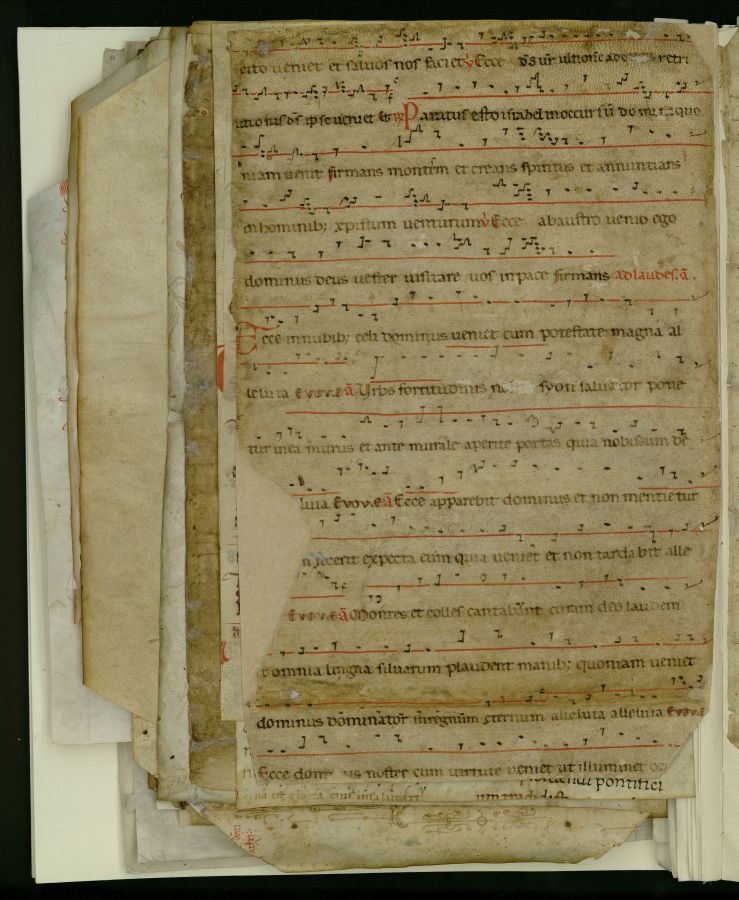 cito veniet et salvos nos faciet ℣ Ecce ds vr ultionē adducet retri
butionis ds ipse veniet et ℟ Paratus esto israhel in occursū domini quo
niam venit firmans montem et creans spiritus et annuntians
in hominib; xpistum venturum ℣ Ecce ab austro venio ego
dominus deus vester visitare vos in pace firmans ad laudes. ā.
Ecce in nubib; celi dominus veniet cum potestate magna al
leluia Evovae ā Urbs fortitudinis syon salvator pone
tur in ea murus et ante murale aperite portas quia nobiscum de
luia Evovae ā Ecce apparebit dominus et non mentietur
fecerit expecta eum quia veniet et non tardabit alle
Evovae ā Montes et colles cantabunt coram deo laudem
t omnia lingna silvarum plaudent manib; quoniam veniet
dominus dominator in regnum eternum alleluia alleluia Evovae
Ecce dominus noster cum virtute veniet ut illuminet oc
pontifici